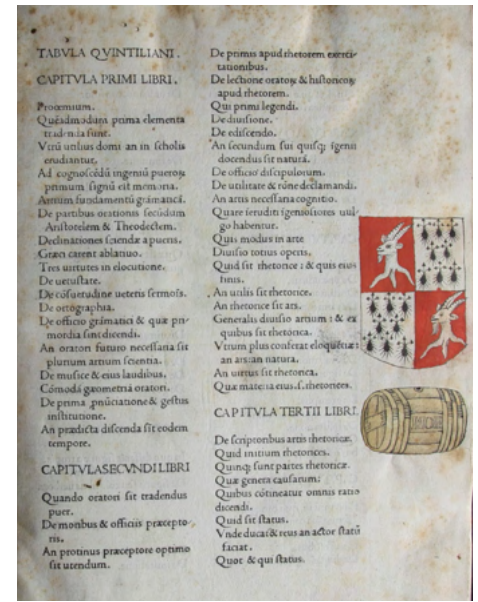 TABVLA QVINTILIANI.
CAPITVLA PRIMI LIBRI.
Prooemium.
Quẽadmodum prima elementa
tradenda sunt.
Vtrũ utilius domi an in scholis
erudiantur.
Ad cognoscẽdũ ingeniũ pueroꝝ
primum signũ eſt memoria.
Artium fundamentũ grãmaticã.
De partibus orationis ſecũdum
Ariſtotelem & Theodectem.
Declinationes ſciendæ a pueris.
Græci carent ablatiuo.
Tres uirtutes in elocutione.
De uetuſtate.
De cõſuetudine ueteris ſermoĩs.
De ortographia.
De officio grãmatici & quæ pri-
mordia ſint dicendi.
An oratori futuro neceſſaria ſit
plurium artium ſcientia.
De muſice & eius laudibus.
Cõmoda gæometriã oratori.
De prima ꝓnũciatiõe & geſtus
inſtitutione.
An prædicta diſcenda ſit eodem
tempore.
CAPITVLA SECVNDI LIBRI
Quando oratori ſit tradendus
puer.
De moribus & officiis præcepto-
ris.
An protinus præceptore optimo
ſit utendum.
De primis apud rhetorem exerci-
tationibus.
De lectione oratoꝝ & hiſtoricoꝝ
apud rhetorem.
Qui primi legendi.
De diuiſione.
De ediſcendo.
An ſecundum ſui quiſqꝫ igenii
docendus ſit naturã.
De officio diſcipulorum.
De utilitate & rõne declamandi.
An artis neceſſaria cognitio.
Quare ĩeruditi ĩgenioſiores uul-
go habentur.
Quis modus in arte
Diuiſio totius operis.
Quid ſit rhetorice: & quis eius
finis.
An utilis ſit rhetorice.
An rhetorice ſit ars.
Generalis diuiſio artium: & ex
quibus ſit rhetorica.
Vtrum plus conferat eloquẽtiæ:
an ars: an natura.
An uirtus ſit rhetorica.
Quæ materia eius .ſ. rhetorices.
CAPITVLA TERTII LIBRI.
De ſcriptoribus artis rhetoricæ.
Quid initium rhetorices.
Quinqꝫ ſunt partes rhetoricæ.
Quæ genera cauſarum.
Quibus cõtineatur omnis ratio
dicendi.
Quid ſit ſtatus.
Vnde ducat & reus an actor ſtatũ
faciat.
Quot & qui ſtatus.